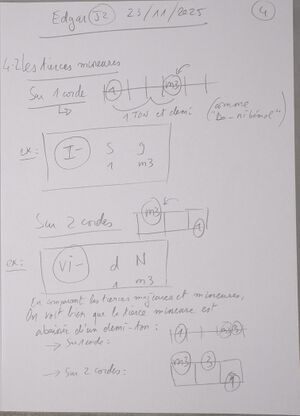 Edgar J2 25/11/2025 4
4.2 Les tierces mineures
Sur 1 corde 1 m3
1 TON et demi
(comme "Do - mi bémol")
ex: I- S g
1 m3
Sur 2 cordes m3
1
ex: vi- d N
1 m3
En comparant les tierces majeures et mineures,
On voit bien que la tierce mineure est
abaissée d'un demi-ton :
→ Sur 1 corde: 1 m3 3
→ Sur 2 cordes: m3 3
1